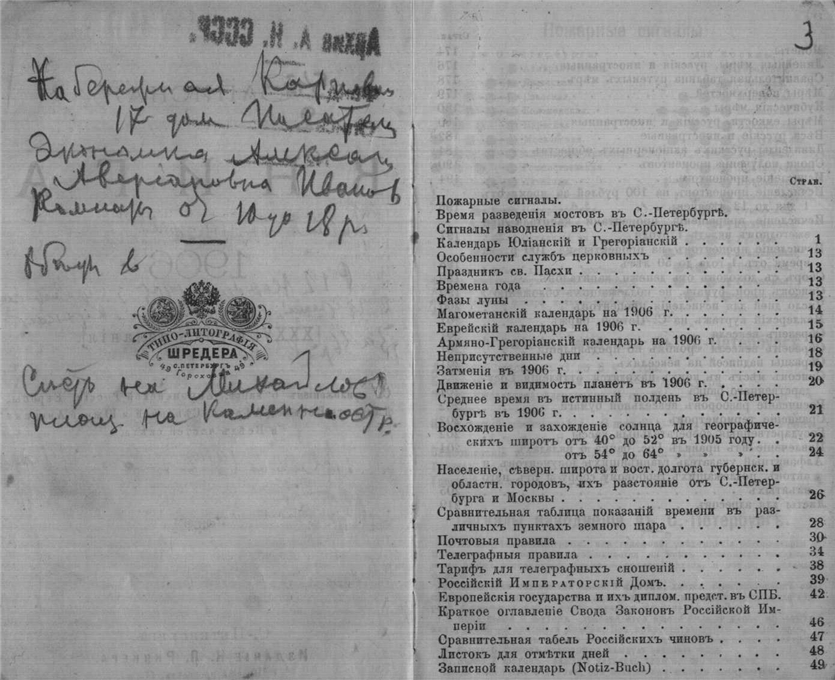 Архив А. Н. СССР.
Набережная Карповки
17 дом
Экономка
Аверьяновна Иванов
Комнаты от 10 до 18 р.
ТИПО-ЛИТОГРАФІЯ
ШРЕДЕРА
С.ПЕТЕРБУРГЪ
49 Гороховая 49
на Михайлов
площ. на Каменноостр.
3
СТРАН.
Пожарные сигналы.
Время разведенія мостовъ въ С.-Петербургѣ.
Сигналы наводненія въ С.-Петербургѣ.
Календарь Юліанскій и Грегоріанскій . . . . . . 1
Особенности службъ церковныхъ . . . . . . . 13
Праздникъ св. Пасхи . . . . . . . . . . . 13
Времена года . . . . . . . . . . . . . 13
Фазы луны . . . . . . . . . . . . . . 13
Магометанскій календарь на 1906 г. . . . . . . 14
Еврейскій календарь на 1906 г. . . . . . . . 15
Армяно-Грегоріанскій календарь на 1906 г. . . . . 16
Неприсутственные дни . . . . . . . . . . 18
Затменія въ 1906 г. . . . . . . . . . . . 19
Движеніе и видимость планетъ въ 1906 г. . . . . . 20
Среднее время въ истинный полдень въ С.-Петер-
бургѣ въ 1906 г. . . . . . . . . . . 21
Восхожденіе и захожденіе солнца для географиче-
скихъ широтъ отъ 40° до 52° въ 1905 году. . 22
отъ 54° до 64° » » » . . 24
Населеніе, сѣверн. широта и вост. долгота губернск. и
областн. городовъ, ихъ разстояніе отъ С.-Петер-
бурга и Москвы . . . . . . . . . . . 26
Сравнительная таблица показаній времени въ раз-
личныхъ пунктахъ земного шара . . . . . . 28
Почтовыя правила . . . . . . . . . . . . 30
Телеграфныя правила . . . . . . . . . . . 34
Тарифъ для телеграфныхъ сношеній . . . . . . 38
Россійскій ИМПЕРАТОРСКІЙ ДОМЪ. . . . . . . 39
Европейскія государства и ихъ диплом. предст. въ СПБ. 42
Краткое оглавленіе Свода Законовъ Россійской Им-
періи . . . . . . . . . . . . . . 46
Сравнительная табель Россійскихъ чиновъ . . . . 47
Листокъ для отмѣтки дней . . . . . . . . . 48
Записной календарь (Notiz-Buch) . . . . . . . 49